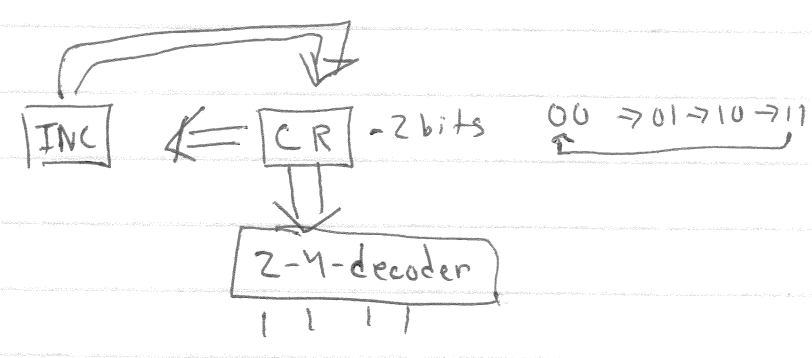 INC CR - 2 bits 00 → 01 → 10 → 11
2-4-decoder